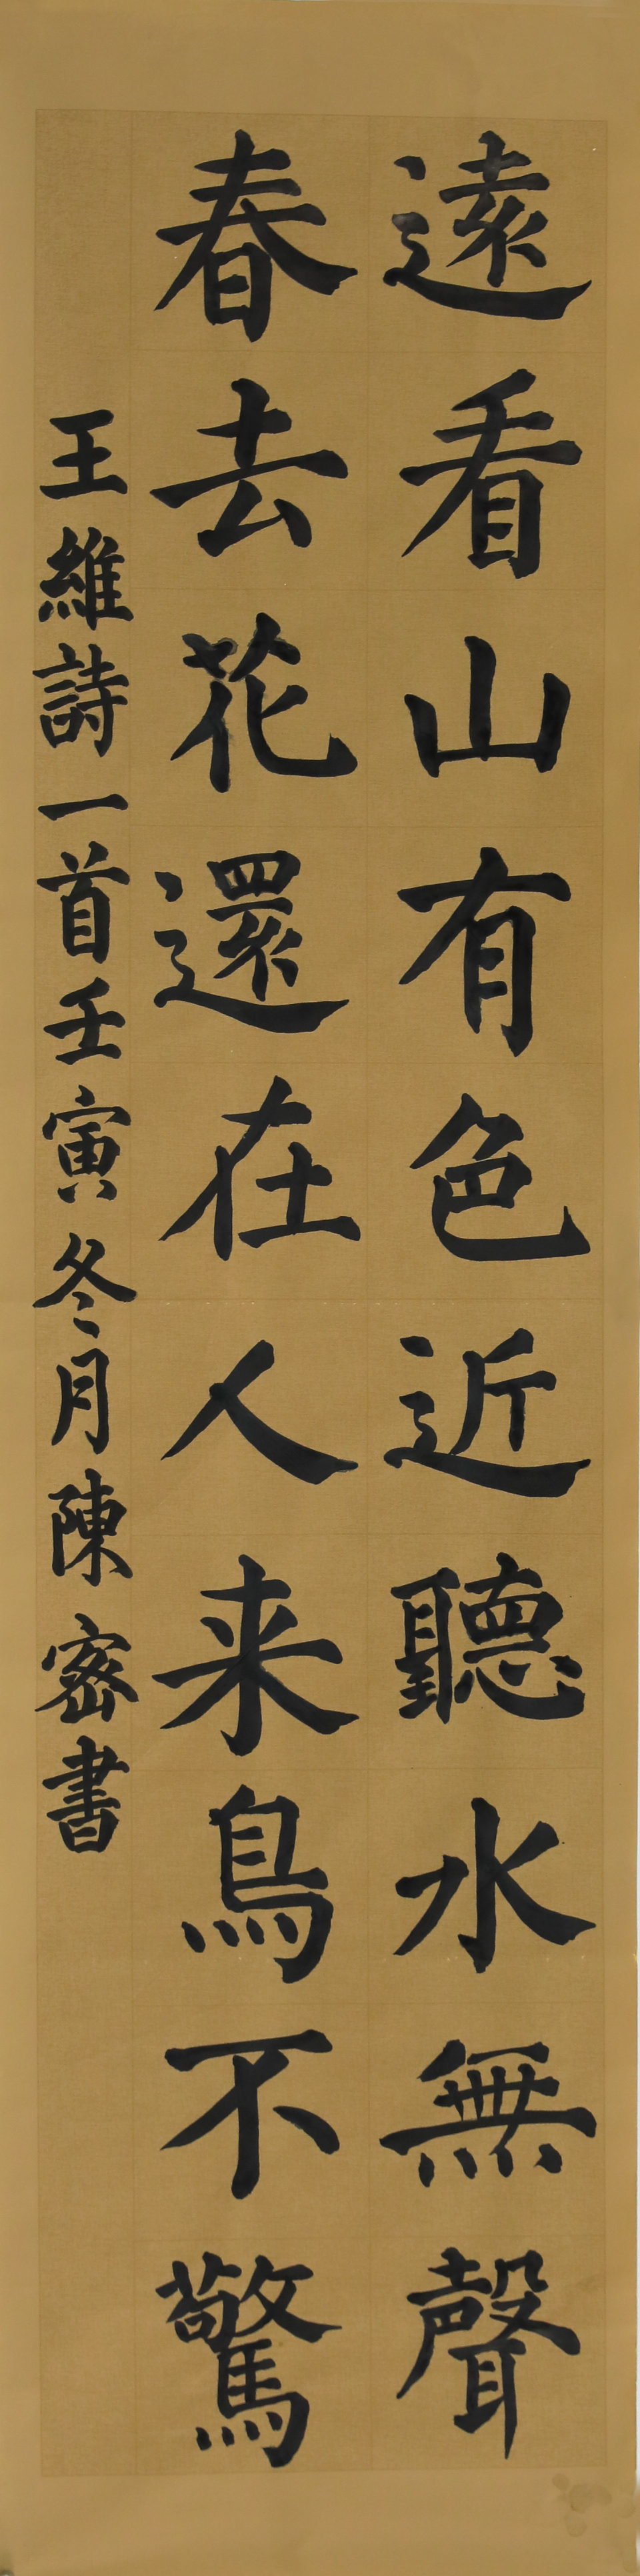 遠看山有色近聽水無聲
春去花還在人来鳥不驚
王維詩一首壬寅冬月陳密書